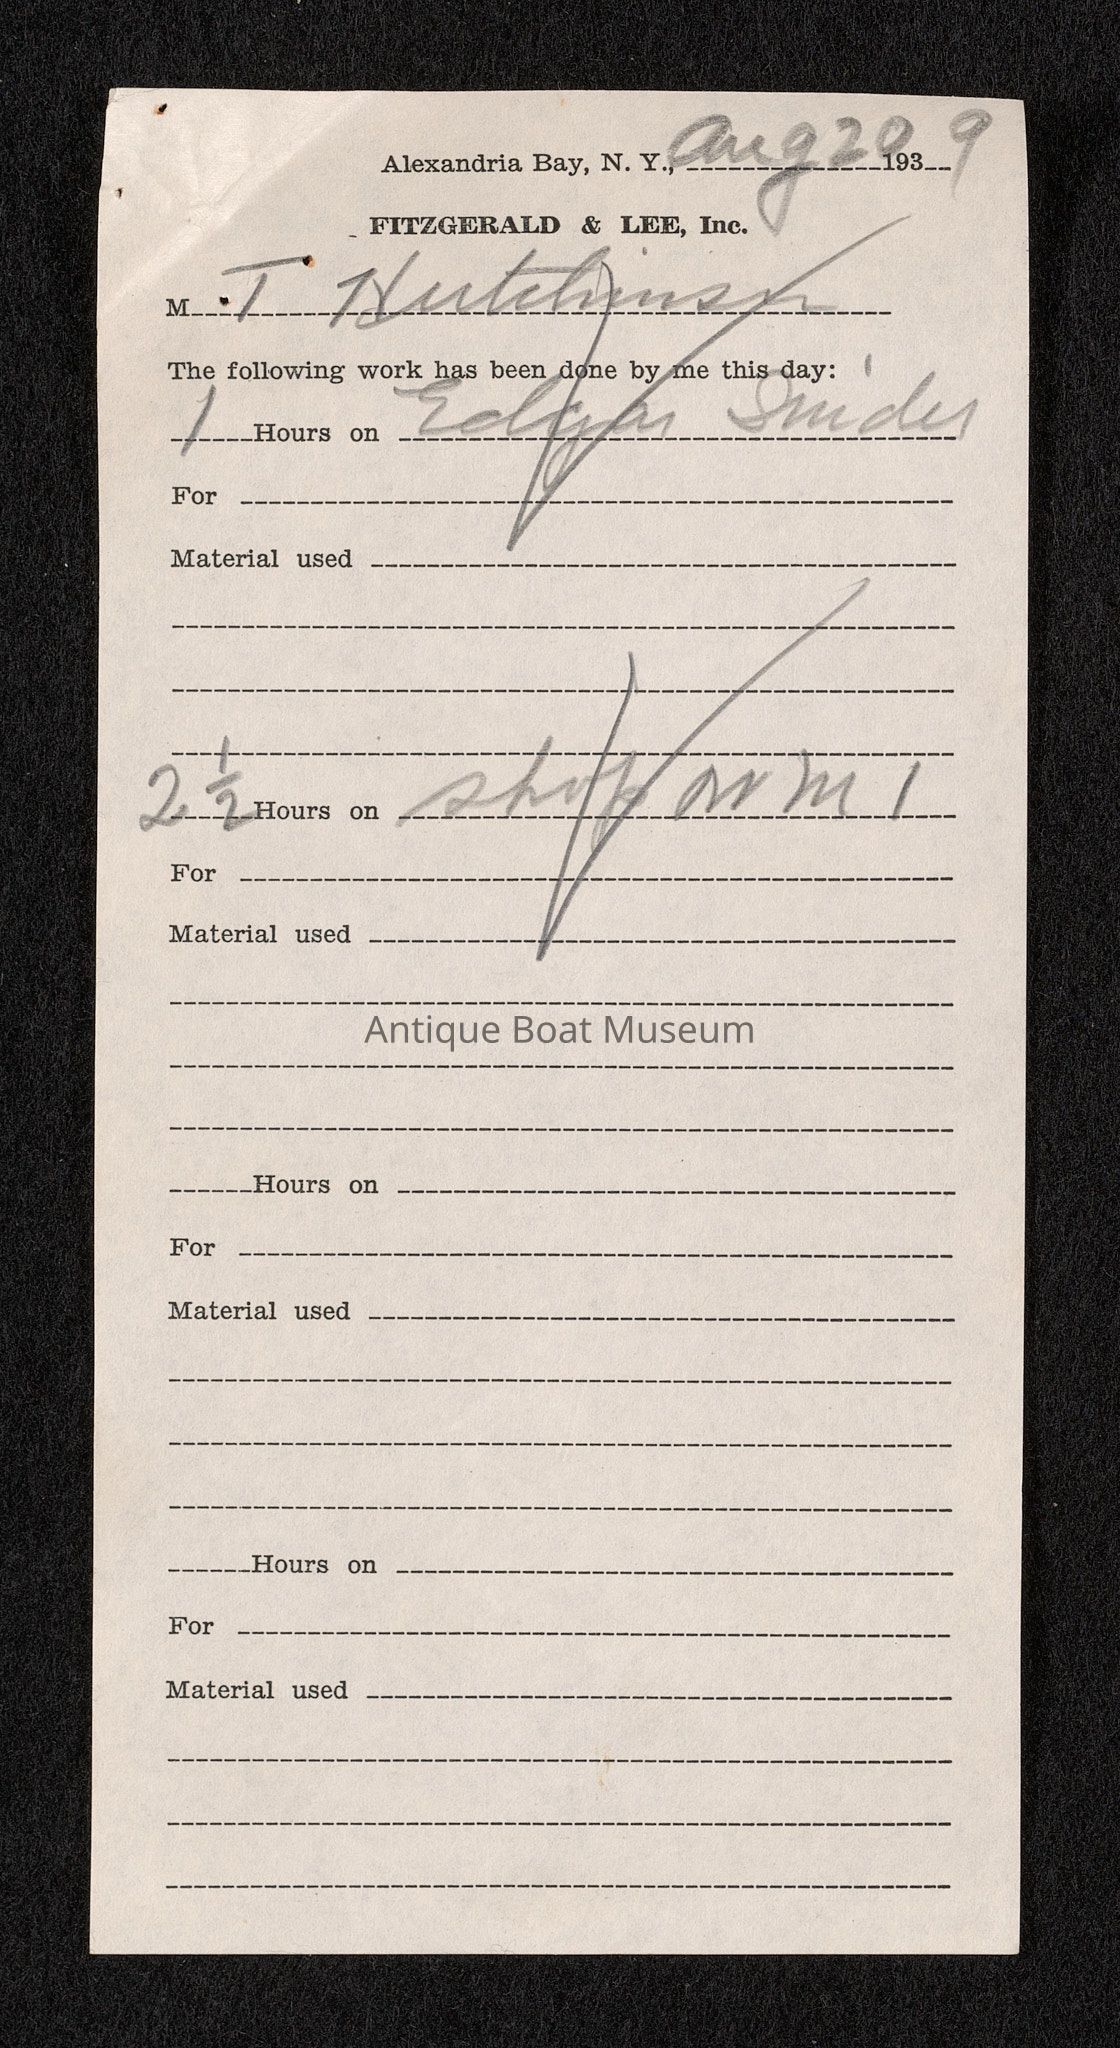 Alexandria Bay, N. Y., Aug 20 1939
FITZGERALD & LEE, Inc.
M T Hutchinson
The following work has been done by me this day:
1 Hours on Edgar Snider
For
Material used
2 1/2 Hours on shop on M 1
For
Material used
Antique Boat Museum
Hours on
For
Material used
Hours on
For
Material used